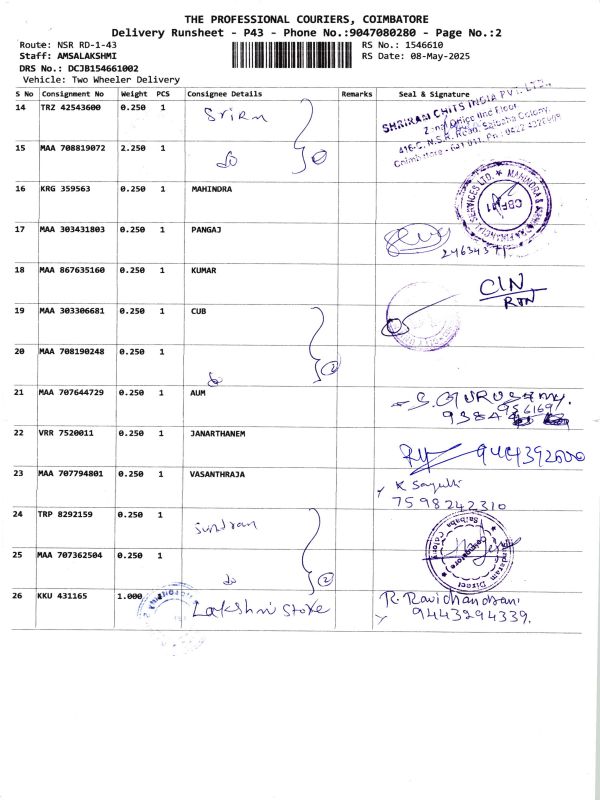 THE PROFESSIONAL COURIERS, COIMBATORE
Delivery Runsheet - P43 - Phone No.:9047080280 - Page No.:2
Route: NSR RD-1-43 RS No.: 1546610
Staff: AMSALAKSHMI RS Date: 08-May-2025
DRS No.: DCJB154661002
Vehicle: Two Wheeler Delivery
S No Consignment No Weight PCS Consignee Details Remarks Seal & Signature
14 TRZ 42543600 0.250 1
SHRIRAM CHITS INDIA PVT. LTD.,
2nd Office IInd Floor
416-C, N.S.R. Road, Saibaba Colony,
Coimbatore - 641 011.
15 MAA 708819072 2.250 1 do 2
16 KRG 359563 0.250 1 MAHINDRA
17 MAA 303431803 0.250 1 PANGAJ
18 MAA 867635160 0.250 1 KUMAR
CIN
RTN
19 MAA 303306681 0.250 1 CUB
20 MAA 708190248 0.250 1 do 2
21 MAA 707644729 0.250 1 AUM S. GURUSAMY.
22 VRR 7520011 0.250 1 JANARTHANEM
23 MAA 707794801 0.250 1 VASANTHRAJA
7598242310
24 TRP 8292159 0.250 1 Sundram
Sundaram Direct
Coimbatore
Saibaba Colony
25 MAA 707362504 0.250 1 do 2
26 KKU 431165 1.000 Lakshmi Store R. Ravichandran
9443294339.